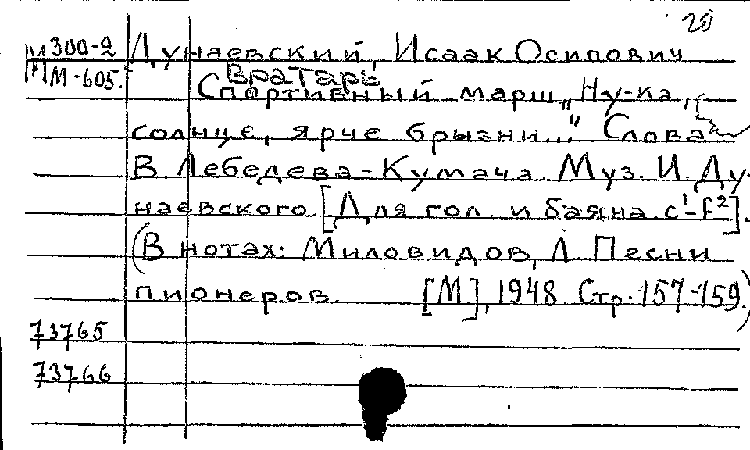 20
М 300-2 Дунаевский, Исаак Осипович
М-605. Вратарь
Спортивный марш „Ну-ка,
солнце, ярче брызни..." Слова
В Лебедева-Кумача Муз. И. Ду-
наевского [Для гол. и баяна. c¹-f²].
(В нотах: Миловидов, Л Песни
пионеров [М], 1948 Стр. 157-159)
73765
73766